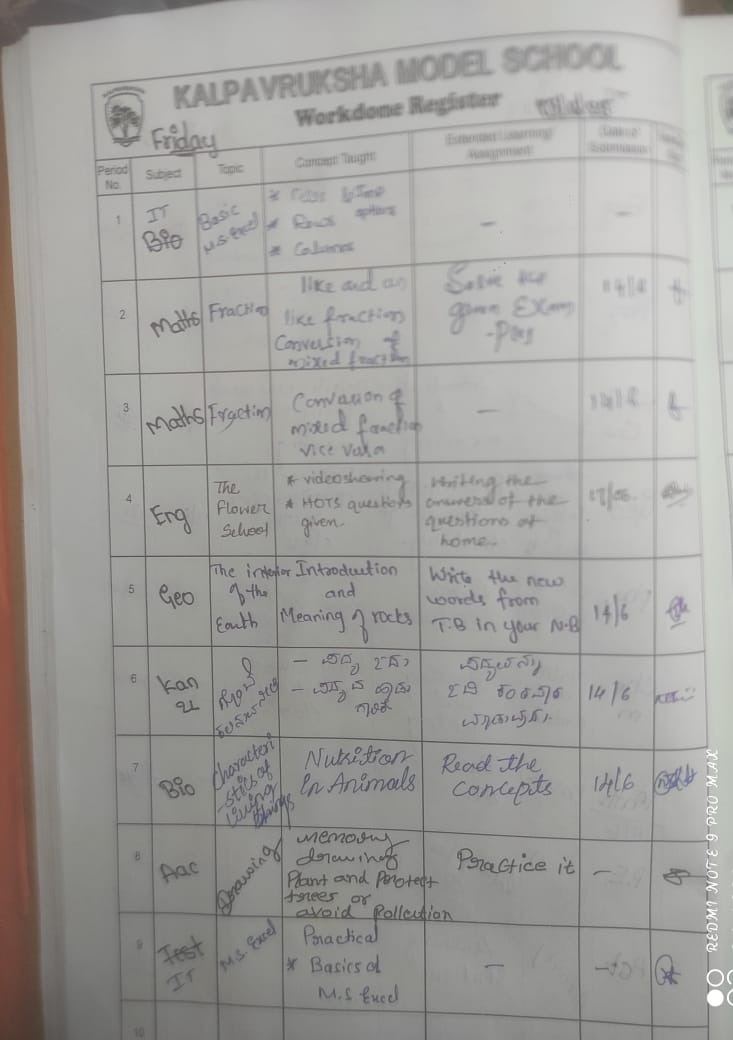 KALPAVRUKSHA MODEL SCHOOL
Workdone Register
Friday
Period No.
Subject
Topic
Concept Taught
Extended Learning/
Assignment
Date of
Submission
1
IT
Bio
Basic
M.S. Excel
* Rows
* Columns
-
-
2
Maths
Fraction
like and un
like fraction
Convertion of
mixed fraction
Solve the
given Exam
-ples
3
Maths
Fraction
mixed fraction
vice varsa
-
4
Eng
The
Flower
School
* video showing
* HOTS questions
given.
writing the
answers of the
questions at
home.
17/06
5
Geo
The interior
of the
Earth
Introduction
and
Meaning of rocks
Write the new
words from
T.B in your N.B
14/6
6
Kan
14/6
7
Bio
Characteri
-stics of
Living
things
Nutrition
in Animals
Read the
concepts
14/6
8
Aac
Drawing
memory
drawing
Plant and Protect
trees or
avoid Pollution
Practice it
-
9
Test
IT
M.S. Excel
Practical
* Basics of
M.S Excel
-
10
REDMI NOTE 9 PRO MAX